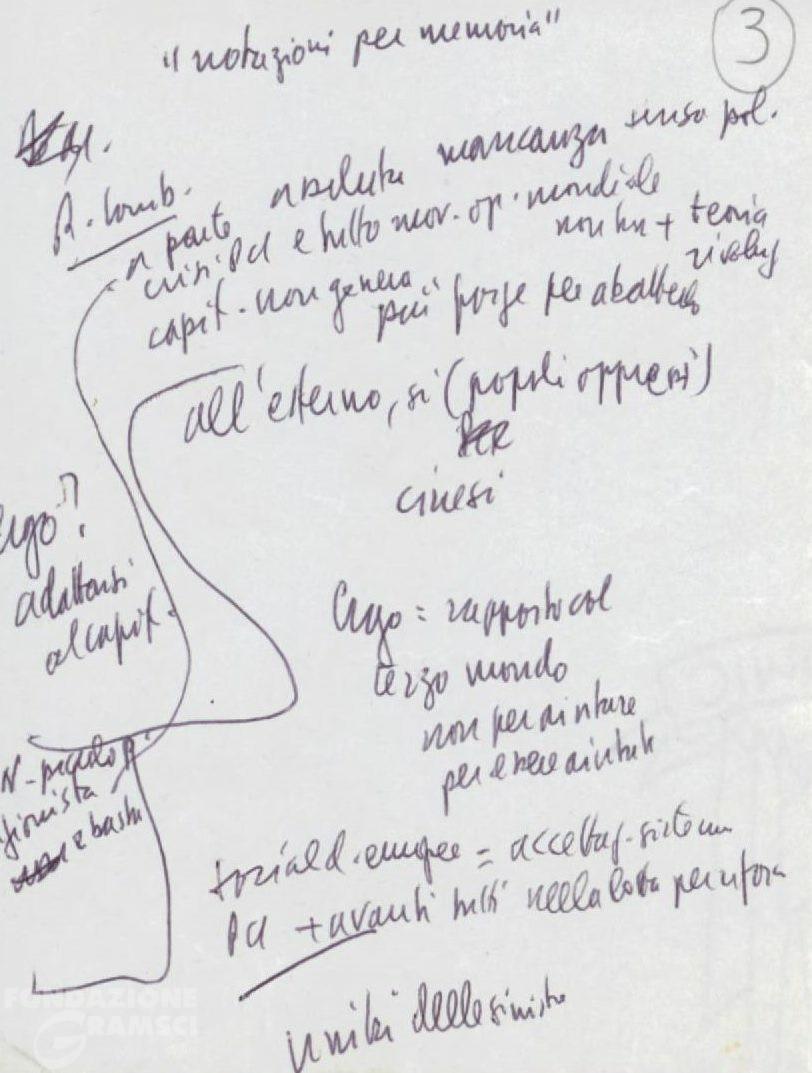 "notazioni per memoria"
3
R. Lomb.
a parte assoluta mancanza senso pol.
crisi PCI e tutto mov. op. mondiale
non ha + teoria
rivoluz
capit. non genera
più forze per abatterlo
all'esterno, sì (popoli oppressi)
cinesi
Ergo?
adattarsi
al capit.
Ergo = rapporto col
terzo mondo
non per aiutare
per essere aiutati
N- piccolo
e basta
sociald. europee = accettaz. sistema
PCI + avanti tutti nella lotta per
unità delle sinistre
FONDAZIONE
GRAMSCI